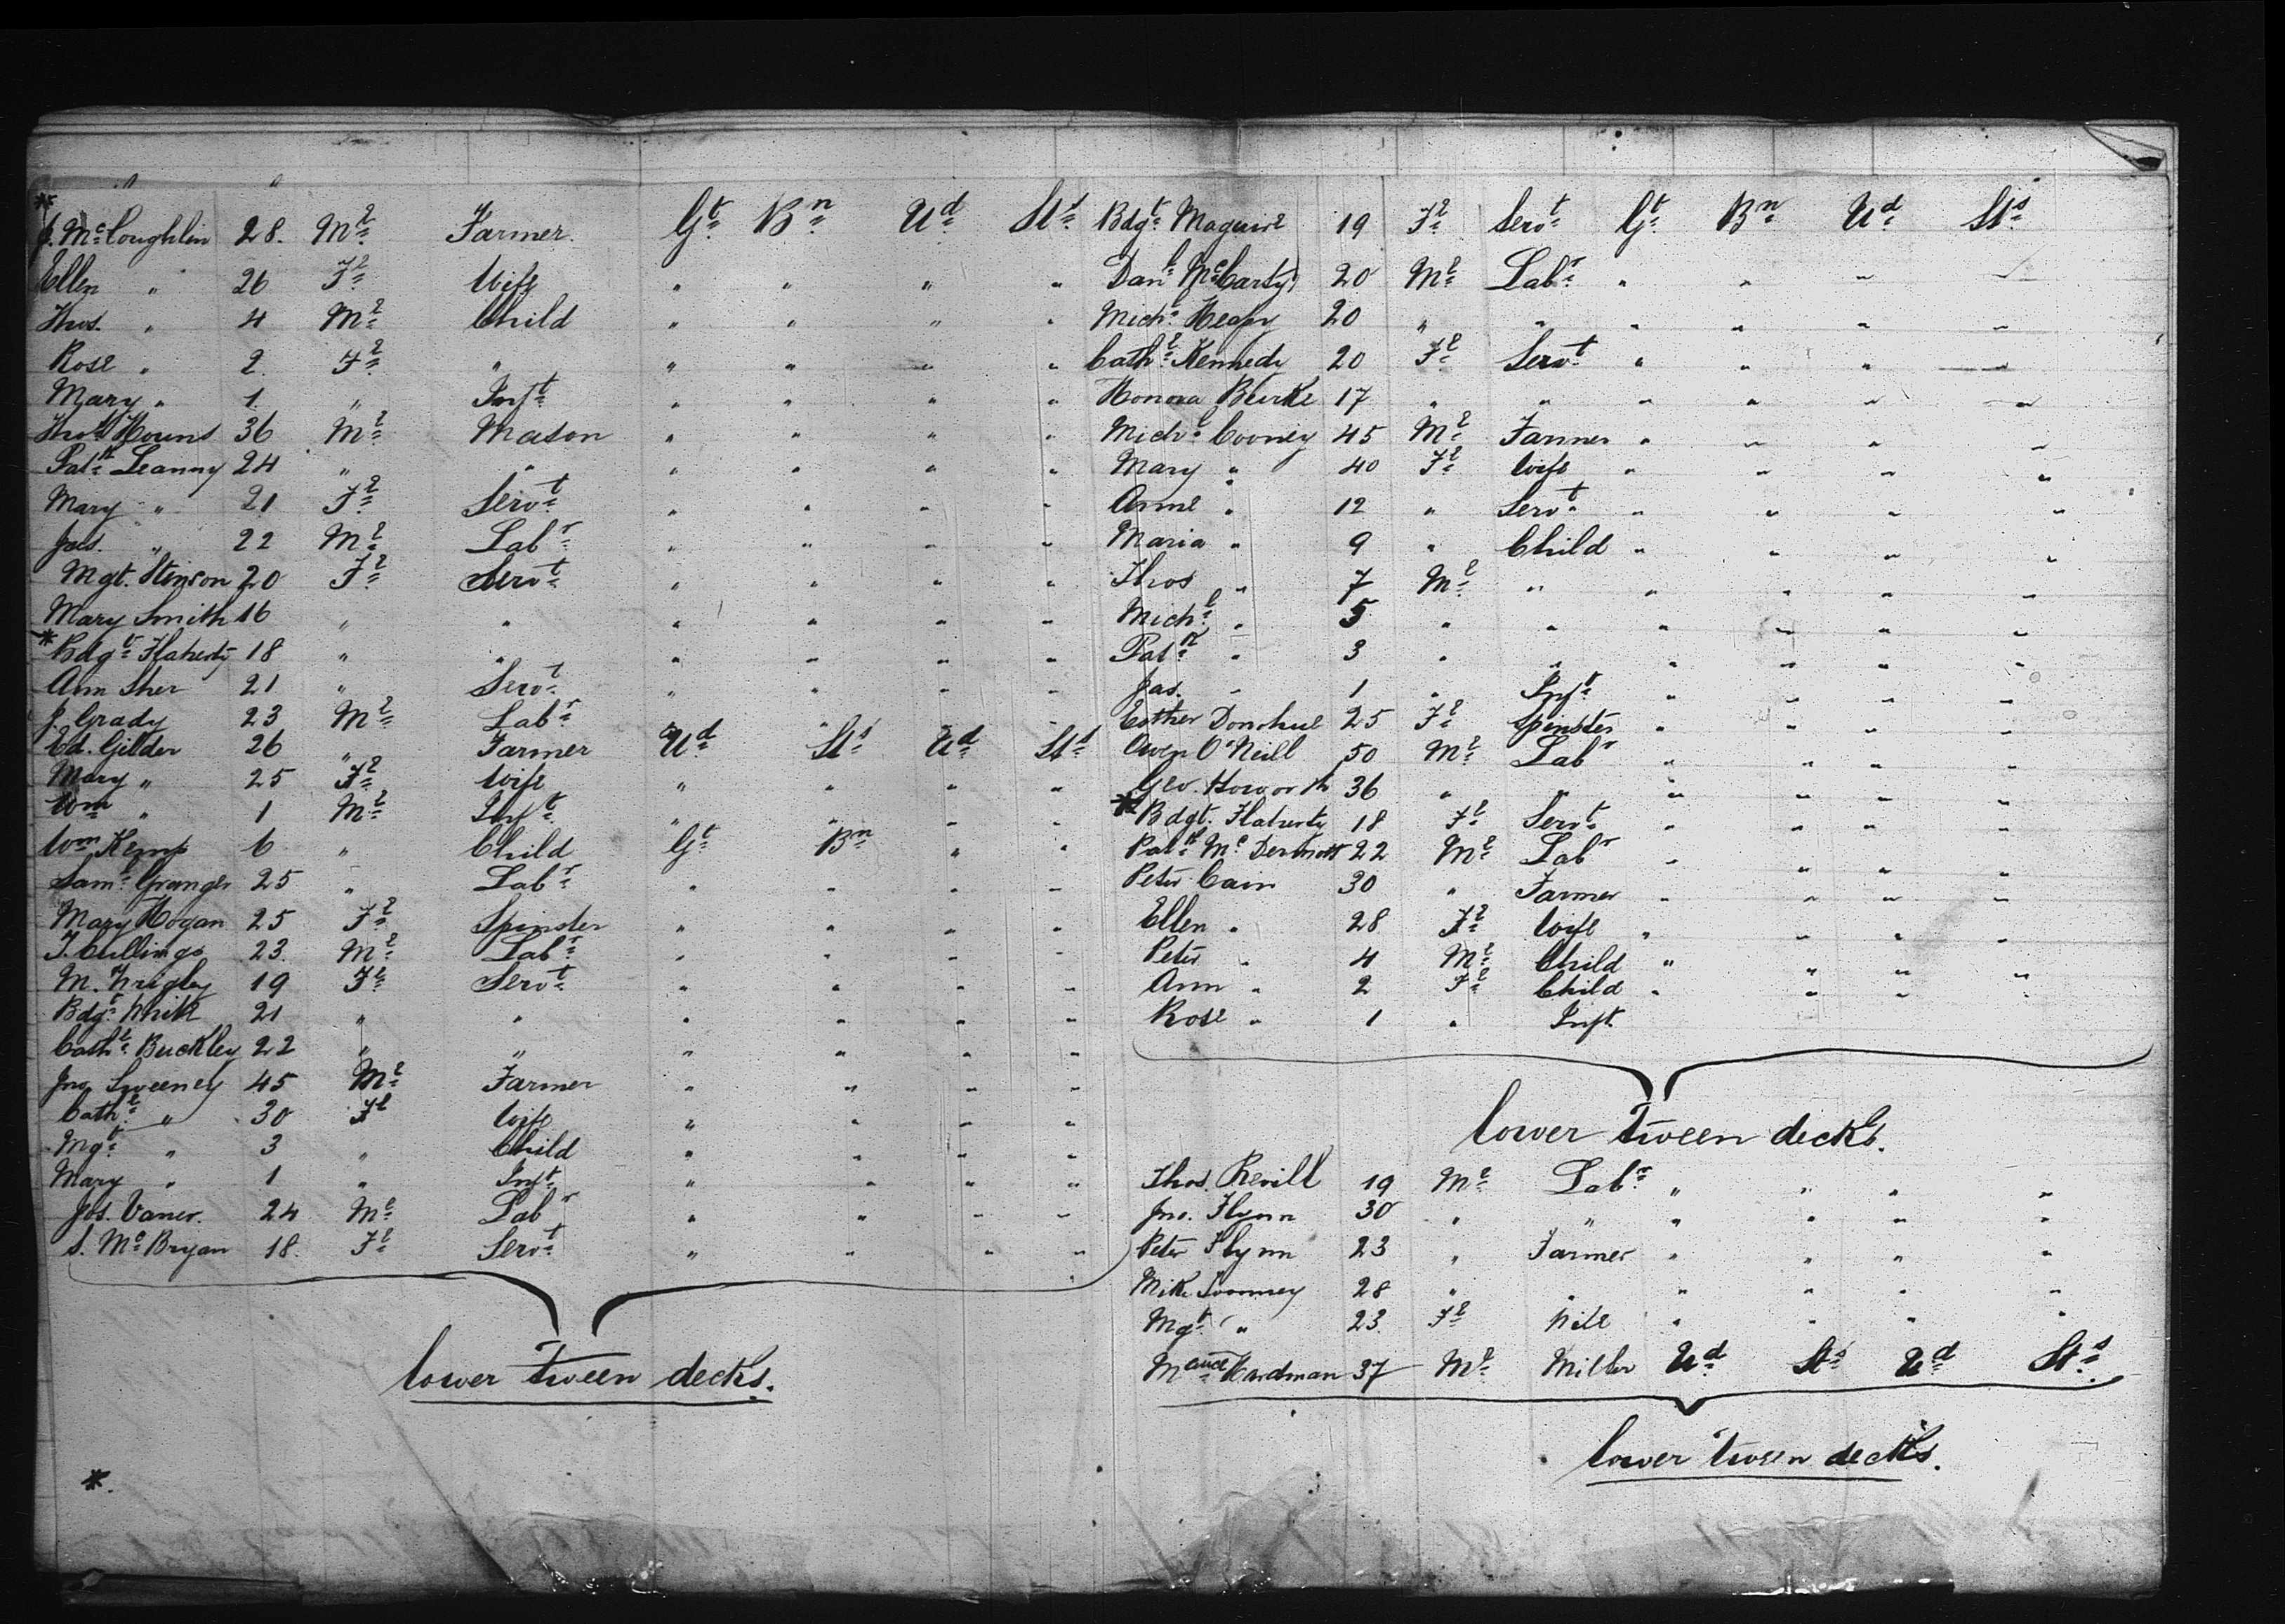 * J. McLoughlin 28. Ml Farmer. Gt Bn Ud Sts
Ellen " 26 Fl Wife " " " "
Thos. " 4 Ml Child " " " "
Rose " 2 Fl " " " " "
Mary " 1 " Inft " " " "
Thos Houns 36 Ml Mason " " " "
Patk Leanny 24 " " " " " "
Mary " 21 Fl Servt " " " "
Jas. " 22 Ml Labr " " " "
Mgt. Stinson 20 Fl Servt " " " "
Mary Smith 16 " " " " " "
* Bdgt Flaherty 18 " " " " " "
Ann Sher 21 " Servt " " " "
J. Grady 23 Ml Labr " " " "
Ed. Gilder 26 " Farmer Ud Sts Ud Sts
Mary " 25 Fl Wife " " " "
Wm " 1 Ml Inft " " " "
Wm Kemp 6 " Child Gt Bn " "
Saml Granger 25 " Labr " " " "
Mary Hogan 25 Fl Spinster " " " "
J. Cullings 23. Ml Labr " " " "
M. Wrigley 19 Fl Servt " " " "
Bdgt 21 " " " " " "
Cathe Buckley 22 " " " " " "
Jno Sweeney 45 Ml Farmer " " " "
Cathe " 30 Fl Wife " " " "
Mgt " 3 " Child " " " "
Mary " 1 " Inft " " " "
Jos. Vaner. 24 Ml Labr " " " "
S. McBryan 18. Fl Servt " " " "
lower tween decks.
*.
Bdgt Maguire 19 Fl Servt Gt Bn Ud Sts
Danl McCarty 20 Ml Labr " " " "
Michl Heapy 20 " " " " " "
Cathe Kennedy 20 Fl Servt " " " "
Honora Burke 17 " " " " " "
Michl Cooney 45 Ml Farmer " " " "
Mary " 40 Fl Wife " " " "
Anne " 12 " Servt " " " "
Maria " 9 " Child " " " "
Thos " 7 Ml " " " " "
Michl " 5 " " " " " "
Patk " 3 " " " " " "
Jas. " 1 " Inft " " " "
Esther Donohue 25 Fl Spinster " " " "
Owen O'Neill 50 Ml Labr " " " "
Geo. Howorth 36 " " " " " "
* Bdgt. Flaherty 18 Fl Servt " " " "
Patk McDermott 22 Ml Labr " " " "
Peter Cain 30 " Farmer " " " "
Ellen " 28 Fl Wife " " " "
Peter " 4 Ml Child " " " "
Ann " 2 Fl Child " " " "
Rose " 1 " Inft
lower tween decks.
Thos. Revill 19 Ml Labr " " " "
Jno. Flynn 30 " " " " " "
Peter Flynn 23 " Farmer " " " "
Mike Toomey 28 " " " " " "
Mgt " 23. Fl Wife " " " "
Hardman 37 Ml Miller Ud Sts Ud Sts
lower tween decks.